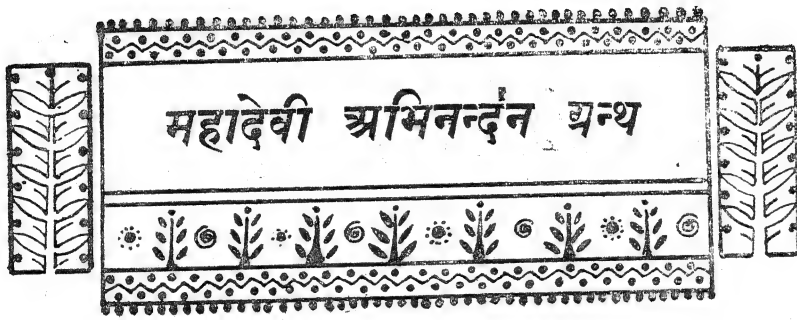 महादेवी अभिनन्दन ग्रन्थ